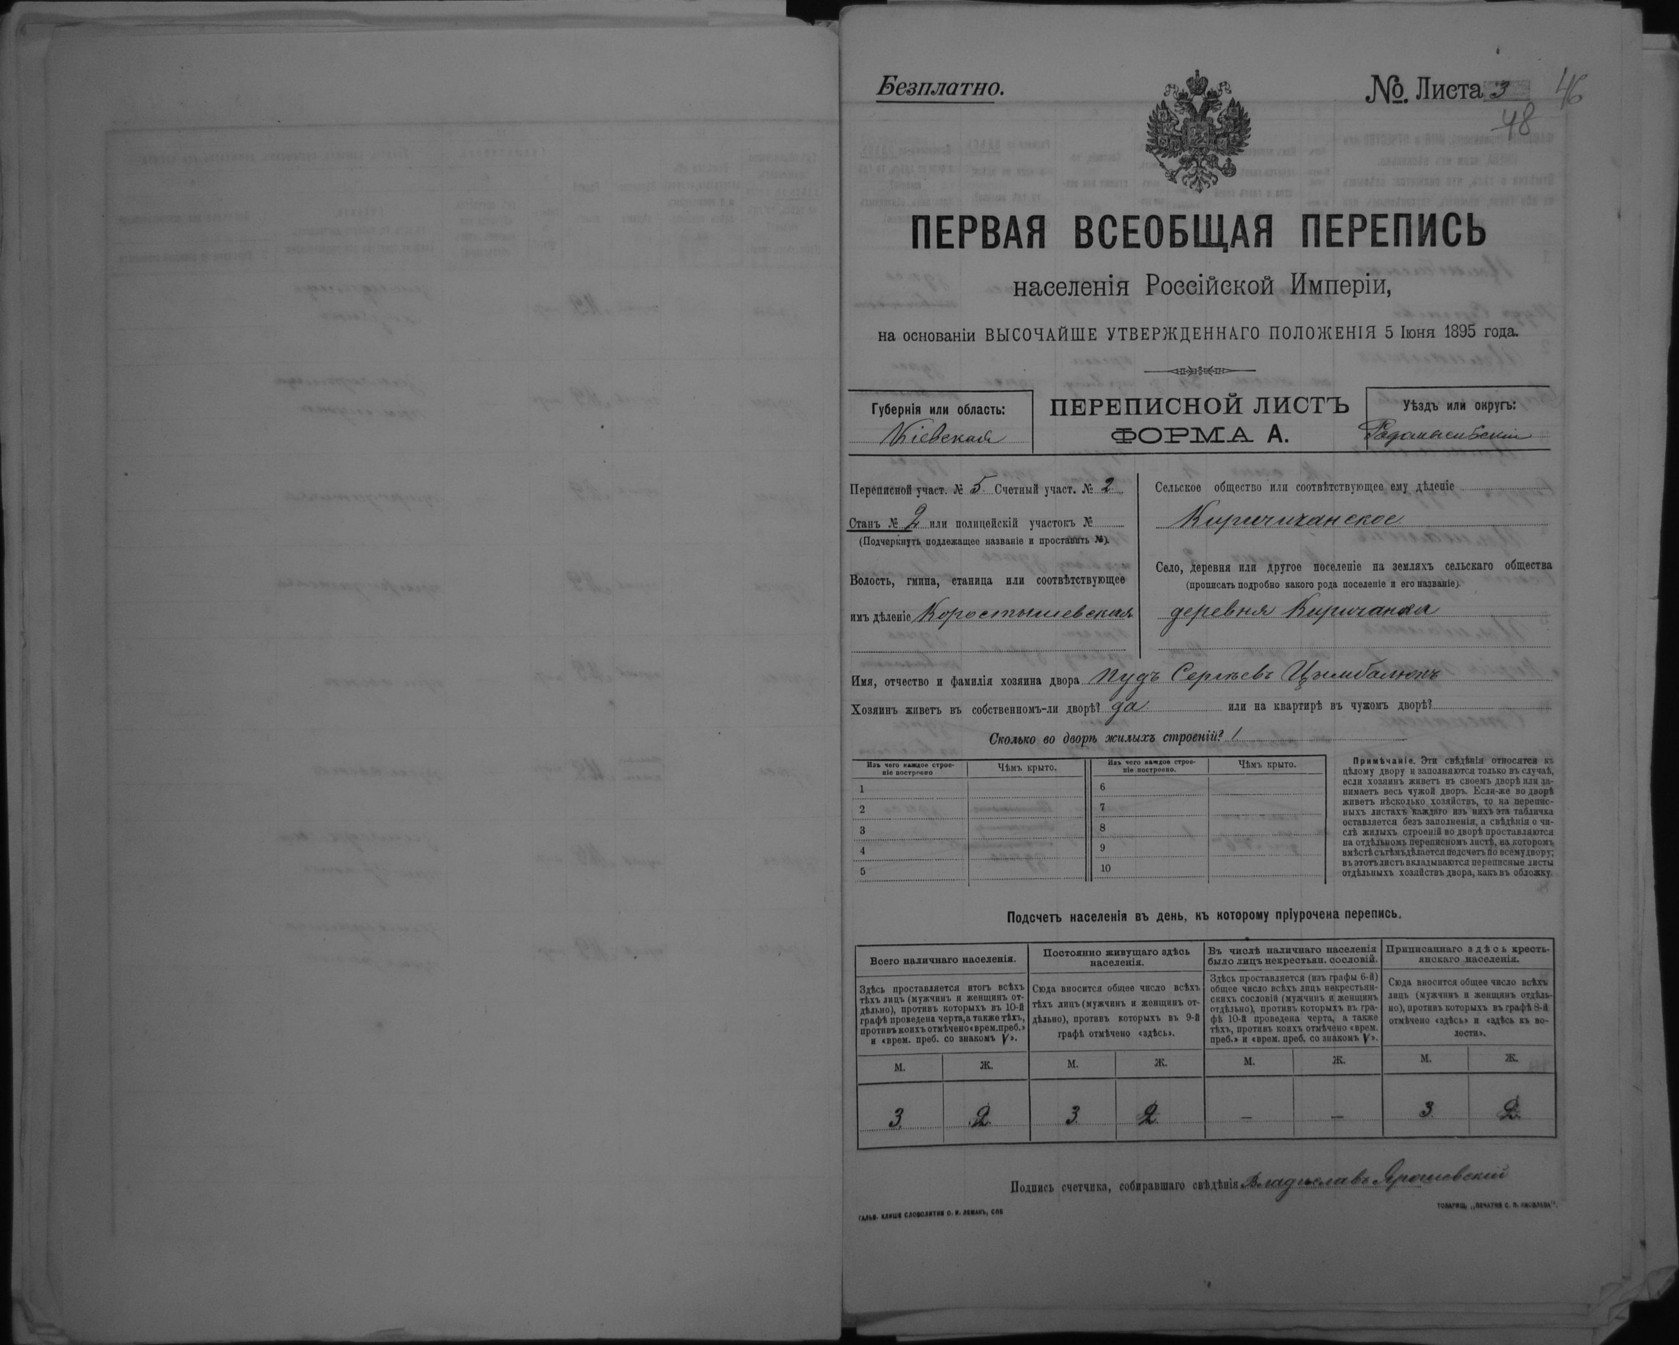 Безплатно.
№. Листа 3
46
48
ПЕРВАЯ ВСЕОБЩАЯ ПЕРЕПИСЬ
населенія Россійской Имперіи,
на основаніи ВЫСОЧАЙШЕ УТВЕРЖДЕННАГО ПОЛОЖЕНІЯ 5 Іюня 1895 года.
Губернія или область:
Кіевская
ПЕРЕПИСНОЙ ЛИСТЪ
ФОРМА А.
Уѣздъ или округъ:
Радомысльскій
Переписной участ. № 5 Счетный участ. № 2
Станъ № 2 или полицейскій участокъ №
(Подчеркнуть подлежащее названіе и проставить №).
Волость, гмина, станица или соотвѣтствующее
имъ дѣленіе Коростышевская
Сельское общество или соотвѣтствующее ему дѣленіе
Киричиханское
Село, деревня или другое поселеніе на земляхъ сельскаго общества
(прописать подробно какого рода поселеніе и его названіе)
деревня Киричанка
Имя, отчество и фамилія хозяина двора Пудъ Сергѣевъ Цымбалюкъ
Хозяинъ живетъ въ собственномъ-ли дворѣ? да или на квартирѣ въ чужомъ дворѣ?
Сколько во дворѣ жилыхъ строеній? 1
Изъ чего каждое строе-
ніе построено
Чѣмъ крыто.
Изъ чего каждое строе-
ніе построено.
Чѣмъ крыто.
1
2
3
4
5
6
7
8
9
10
Примѣчаніе. Эти свѣдѣнія относятся къ
цѣлому двору и заполняются только въ случаѣ,
если хозяинъ живетъ въ своемъ дворѣ или за-
нимаетъ весь чужой дворъ. Если-же во дворѣ
живетъ нѣсколько хозяйствъ, то на перепис-
ныхъ листахъ каждаго изъ нихъ эта табличка
оставляется безъ заполненія, а свѣдѣнія о чи-
слѣ жилыхъ строеній во дворѣ проставляются
на отдѣльномъ переписномъ листѣ, на которомъ
вмѣстѣ съ тѣмъ дѣлается подсчетъ по всему двору;
въ этотъ листъ вкладываются переписные листы
отдѣльныхъ хозяйствъ двора, какъ въ обложку.
Подсчетъ населенія въ день, къ которому пріурочена перепись.
Всего наличнаго населенія.
Здѣсь проставляется итогъ всѣхъ
тѣхъ лицъ (мужчинъ и женщинъ от-
дѣльно), противъ которыхъ въ 10-й
графѣ проведена черта, а также тѣхъ,
противъ коихъ отмѣчено «врем. преб.»
и «врем. преб. со знакомъ V».
Постоянно живущаго здѣсь
населенія.
Сюда вносится общее число всѣхъ
тѣхъ лицъ (мужчинъ и женщинъ от-
дѣльно), противъ которыхъ въ 9-й
графѣ отмѣчено «здѣсь».
Въ числѣ наличнаго населенія
было лицъ некрестьян. сословій.
Здѣсь проставляется (изъ графы 6-й)
общее число всѣхъ лицъ некрестьян-
скихъ сословій (мужчинъ и женщинъ
отдѣльно), противъ которыхъ въ гра-
фѣ 10-й проведена черта, а также
тѣхъ, противъ коихъ отмѣчено «врем.
преб.» и «врем. преб. со знакомъ V».
Приписаннаго здѣсь кресть-
янскаго населенія.
Сюда вносится общее число всѣхъ
лицъ (мужчинъ и женщинъ отдѣль-
но), противъ которыхъ въ графѣ 8-й
отмѣчено «здѣсь» и «здѣсь въ во-
лости».
М. Ж. М. Ж. М. Ж. М. Ж.
3 2 3 2 — — 3 2
Подпись счетчика, собиравшаго свѣдѣнія Владиславъ Ярошевскій
ГАЛЬВ. КЛИШЕ СЛОВОЛИТНИ О. И. ЛЕМАНЪ, СПБ
ТОВАРИЩ. „ПЕЧАТНЯ С. П. ЯКОВЛЕВА".